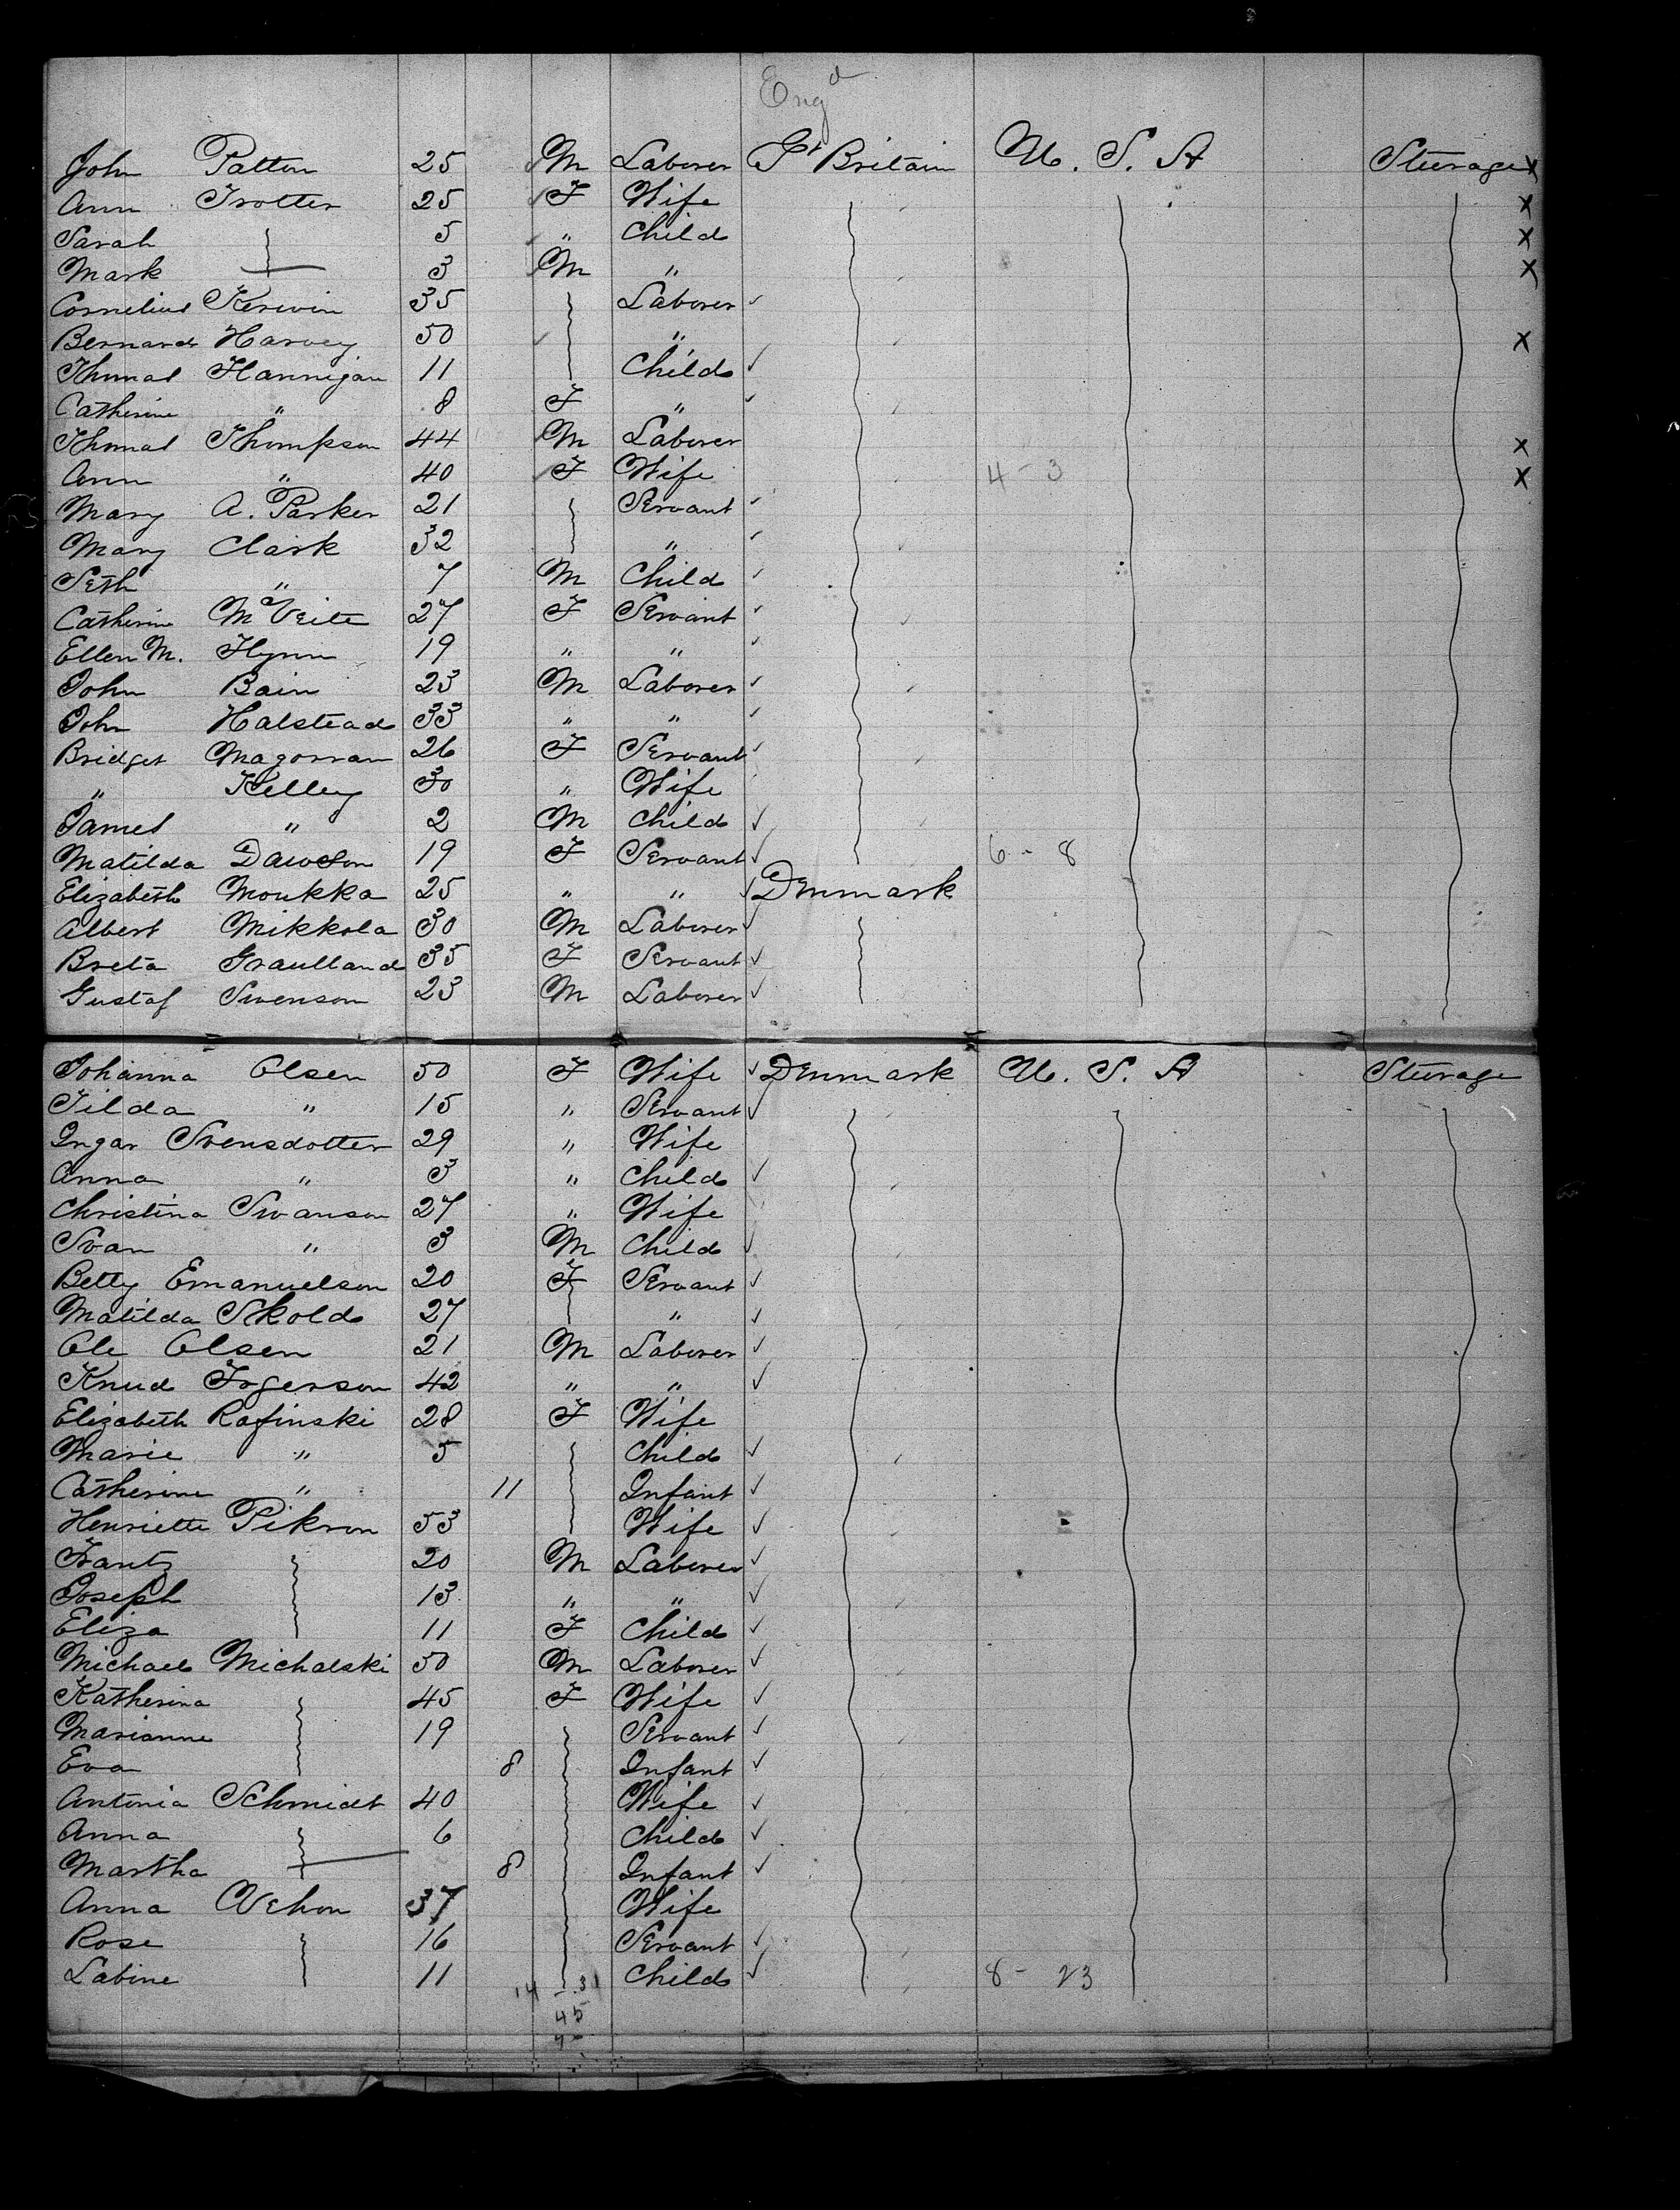 Eng d
John Patton 25 M Laborer Gt Britain U. S. A Steerage x
Ann Trotter 25 F Wife x
Sarah 5 " Child x
Mark 3 M " x
Cornelius Kerwin 35 Laborer ✓
Bernard Harvey 50 " x
Thomas Hannigan 11 Child ✓
Catherine " 8 F " ✓
Thomas Thompson 44 M Laborer x
Ann " 40 F Wife 4 - 3 x
Mary A. Parker 21 Servant ✓
Mary Clark 32 " ✓
Seth " 7 M Child ✓
Catherine McVeite 27 F Servant ✓
Ellen M. Flynn 19 " " ✓
John Bain 23 M Laborer ✓
John Halstead 33 " " ✓
Bridget Magorran 26 F Servant ✓
" Kelley 30 " Wife
James " 2 M Child ✓
Matilda Dawson 19 F Servant ✓ 6 - 8
Elizabeth Moukka 25 " " ✓ Denmark
Albert Mikkola 30 M Laborer ✓
Breta Graulland 35 F Servant ✓
Gustaf Swenson 23 M Laborer ✓
Johanna Olsen 50 F Wife ✓ Denmark U. S. A Steerage
Tilda " 15 " Servant ✓
Ingar Svensdotter 29 " Wife
Anna " 3 " Child ✓
Christina Swanson 27 " Wife
Svan " 3 M Child ✓
Betty Emanuelson 20 F Servant ✓
Matilda Skold 27 " ✓
Ole Olsen 21 M Laborer ✓
Knud 42 " " ✓
Elizabeth Rafinski 28 F Wife
Marie " 5 Child ✓
Catherine " 11 Infant ✓
Henriette Pikron 53 Wife ✓
Frantz 20 M Laborer ✓
Joseph 13 " " ✓
Eliza 11 F Child ✓
Michael Michalski 50 M Laborer ✓
Katherina 45 F Wife ✓
Marianne 19 Servant ✓
Eva 8 Infant ✓
Antonia Schmidt 40 Wife ✓
Anna 6 Child ✓
Martha 8 Infant ✓
Anna Vehon 37 Wife
Rose 16 Servant ✓
Labine 11 Child ✓ 8 - 23
14 - 31
45